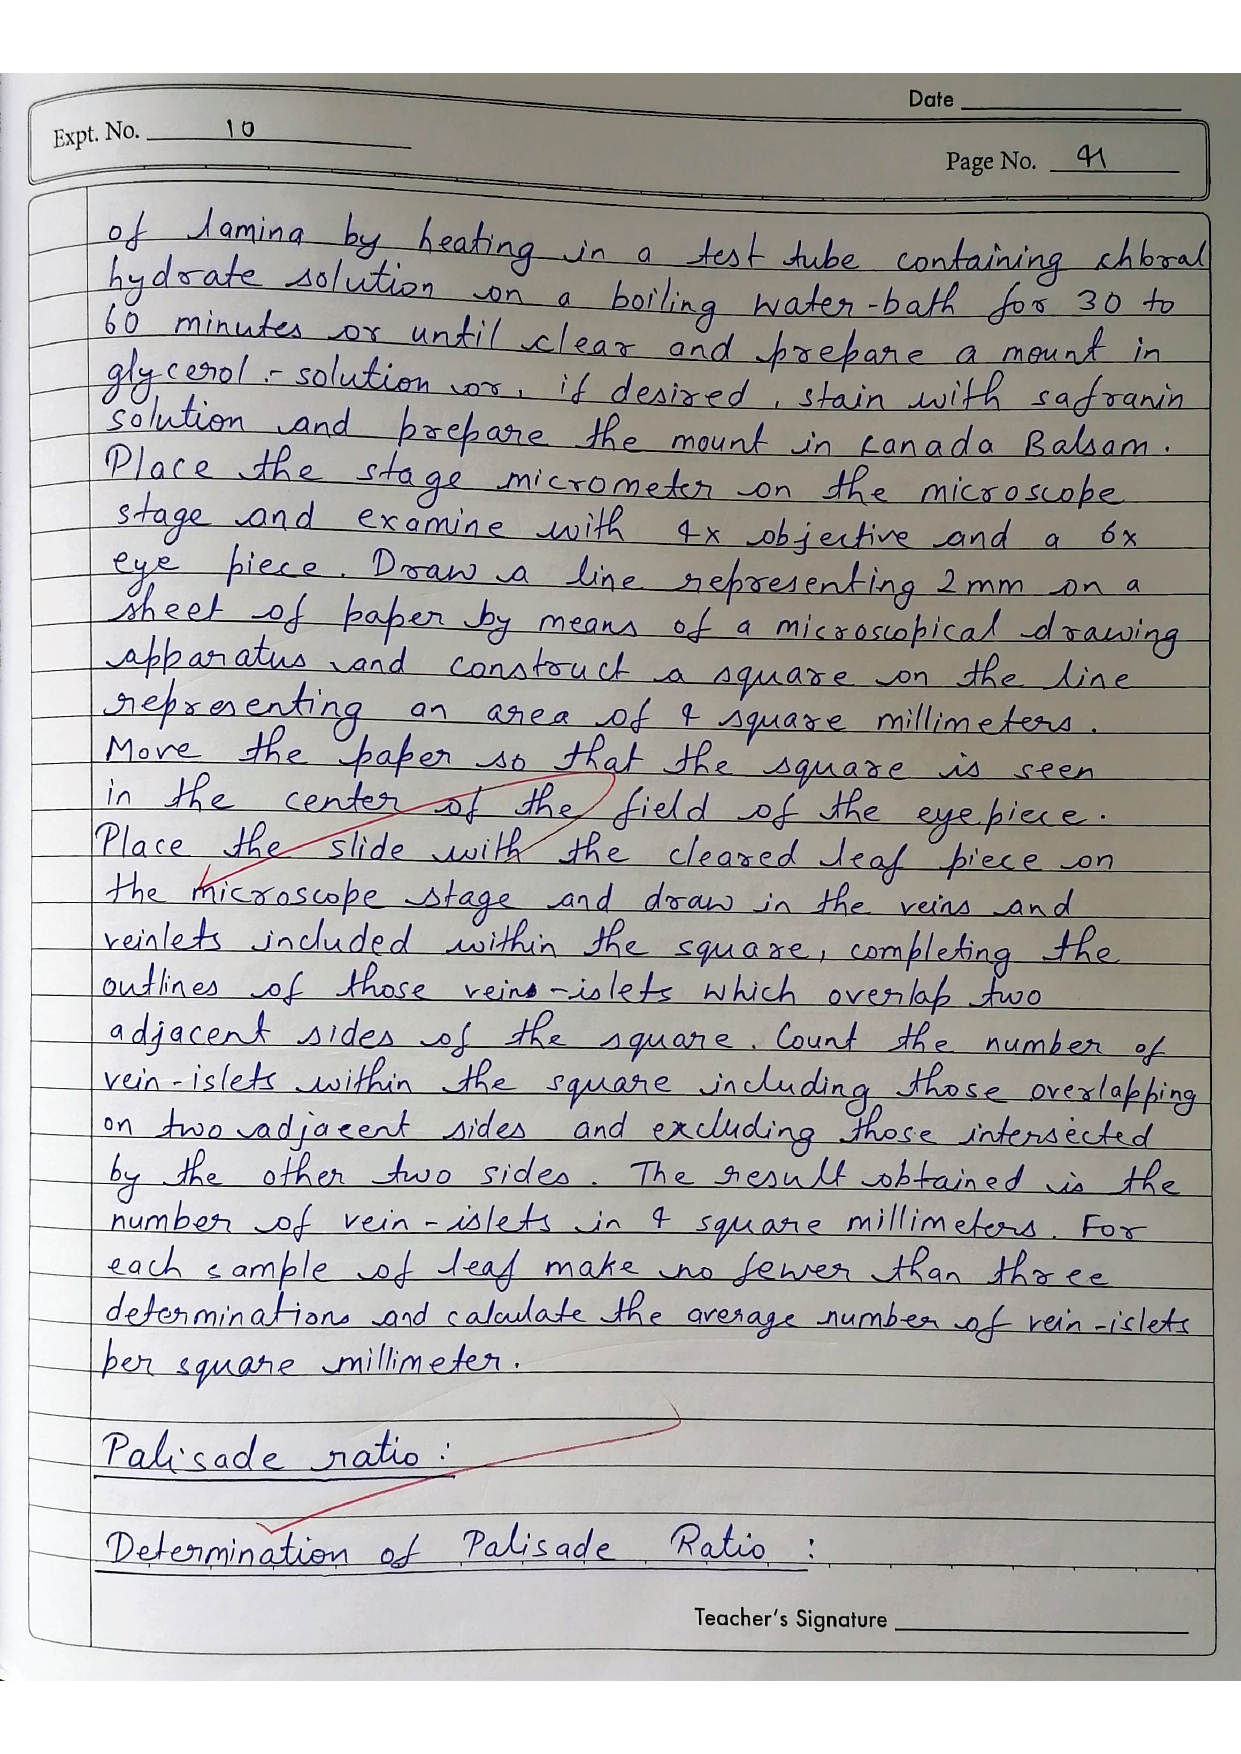 Date
Expt. No. 10
Page No. 41
of lamina by heating in a test tube containing chloral
hydrate solution on a boiling water-bath for 30 to
60 minutes or until clear and prepare a mount in
glycerol - solution or, if desired, stain with safranin
solution and prepare the mount in Canada Balsam.
Place the stage micrometer on the microscope
stage and examine with 4x objective and a 6x
eye piece. Draw a line representing 2mm on a
sheet of paper by means of a microscopical drawing
apparatus and construct a square on the line
representing an area of 4 square millimeters.
Move the paper so that the square is seen
in the center of the field of the eyepiece.
Place the slide with the cleared leaf piece on
the microscope stage and draw in the veins and
veinlets included within the square, completing the
outlines of those veins-islets which overlap two
adjacent sides of the square. Count the number of
vein-islets within the square including those overlapping
on two adjacent sides and excluding those intersected
by the other two sides. The result obtained is the
number of vein-islets in 4 square millimeters. For
each sample of leaf make no fewer than three
determinations and calculate the average number of vein-islets
per square millimeter.
Palisade ratio :
Determination of Palisade Ratio :
Teacher's Signature